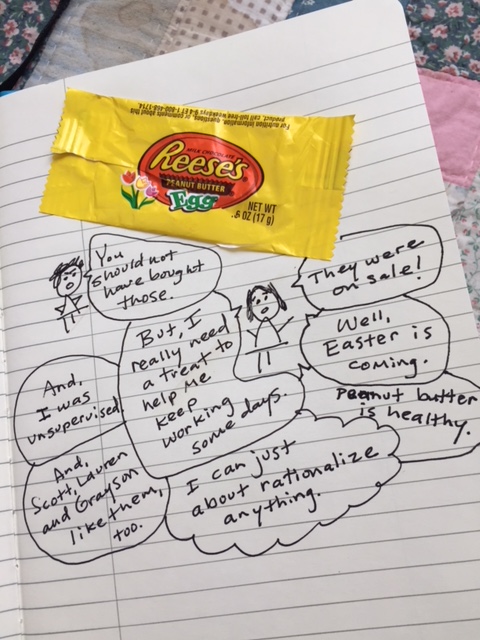 For nutrition information, questions, or comments about this
product, call toll-free weekdays 9-4 ET 1-800-468-1714.
Reese's
MILK CHOCOLATE
PEANUT BUTTER
Egg
NET WT
.6 OZ (17 g)
You
should not
have bought
those.
They were
on sale!
But, I
really need
a treat to
help me
keep
working
some days.
Well,
Easter is
coming.
And,
I was
unsupervised.
Peanut butter
is healthy.
And,
Scott, Lauren
and Grayson
like them,
too.
I can just
about rationalize
anything.